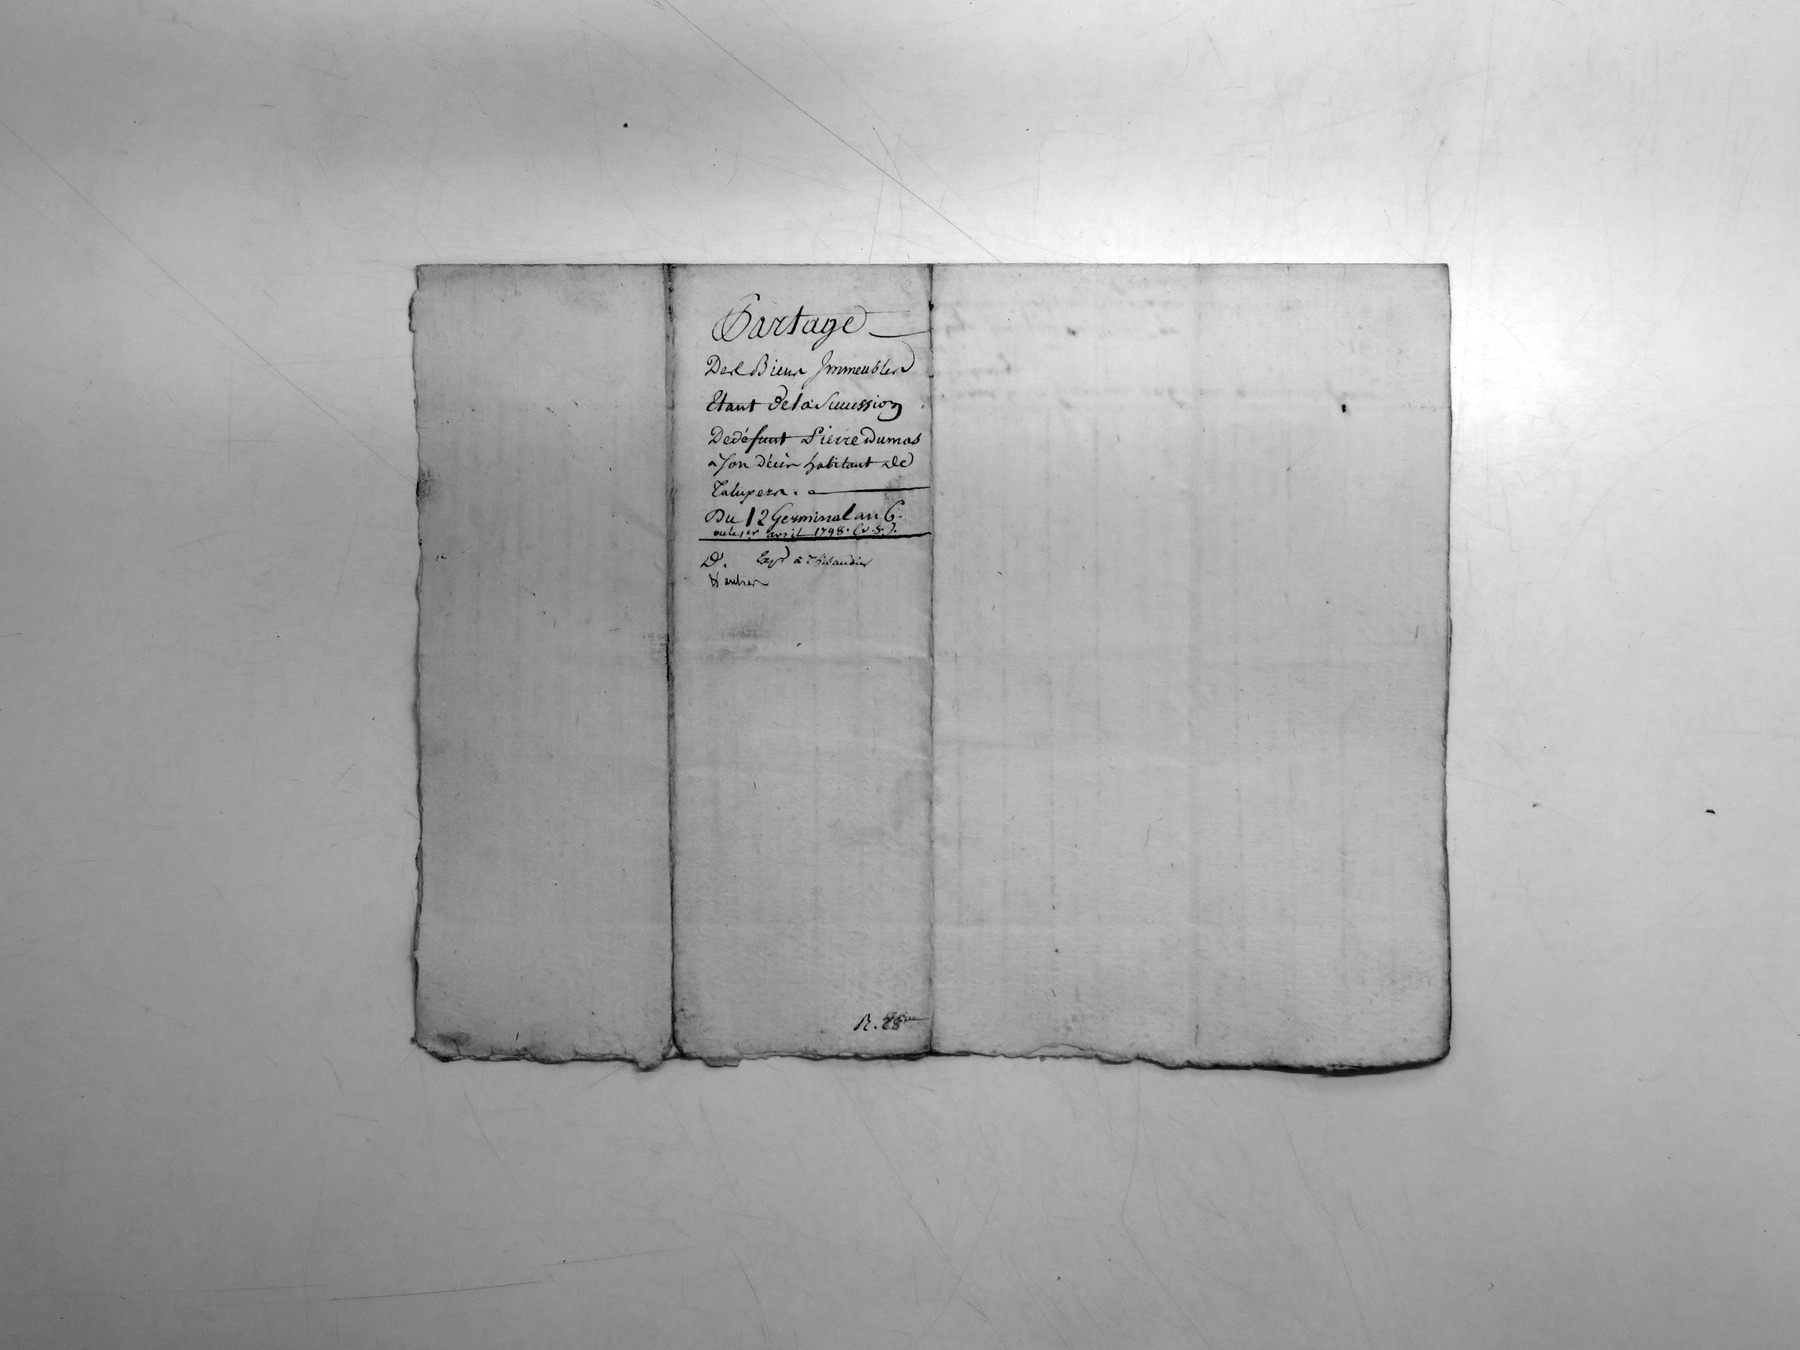 Partage
Des Biens Immeubles
Etant dela Succession
Dedéfunt Pierre Dumas
a Son Décès habitant De
Talupers.
Du 12 Germinal an 6.
oule 1er avril 1798. (v.S.).
D. Expé a Thibaudier
&
R. 28